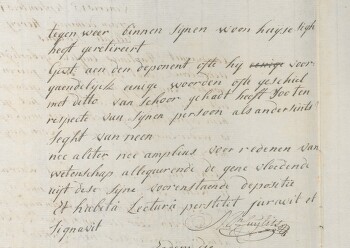 tegen weer binnen synen woon huyse sigh
heeft geretireert
Gevr: aen den deponent ofte hy eenige voor
gaendelyck eenige woorden ofte geschiel
met ditto van Schoor gehadt heeft soo ten
respecte van synen persoon als andersints
Seght van neen
nec aliter nec amplius voor redenen van
wetenschap allegeerende de gene vloeiende
uijt dese syne voorenstaende depositie
et habita Lectura perstitit juravit et
signavit